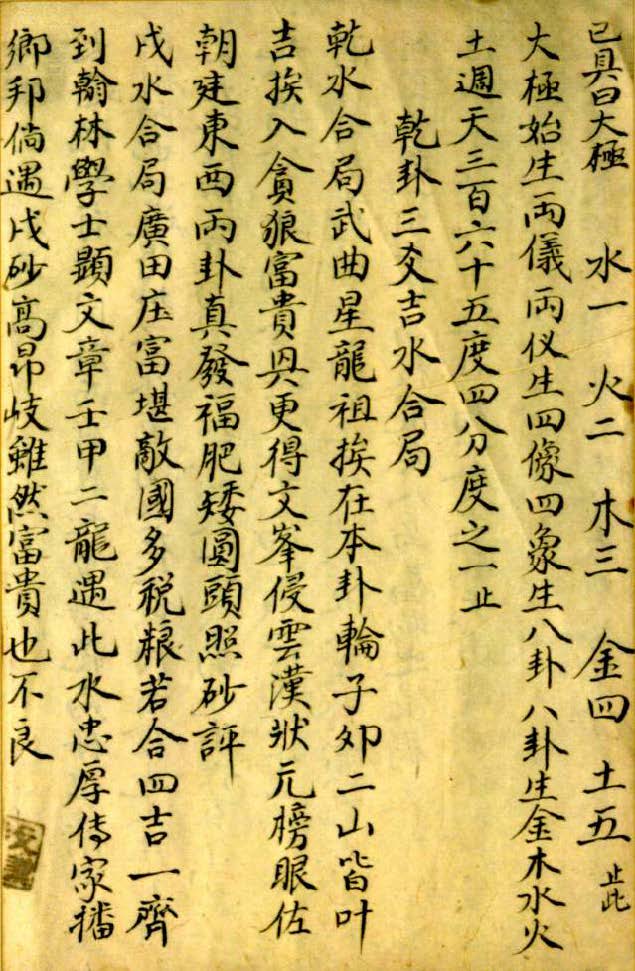 已具曰大極　水一　火二　木三　金四　土五　止此
大極始生両儀両仪生四像四象生八卦八卦生金木水火
土週天三百六十五度四分度之一止
乾卦三爻吉水合局
乾水合局武曲星龍祖挨在本卦輪子夘二山皆叶
吉挨入貪狼富貴具更得文峯侵雲漢狀元榜眼佐
朝廷東西両卦真發福肥矮圓頭照砂評
戌水合局廣田庄富堪敵國多税粮若合四吉一齊
到翰林學士顕文章壬甲二龍遇此水忠厚傳家播
鄉邦倘遇戌砂高昂歧雖然富貴也不良